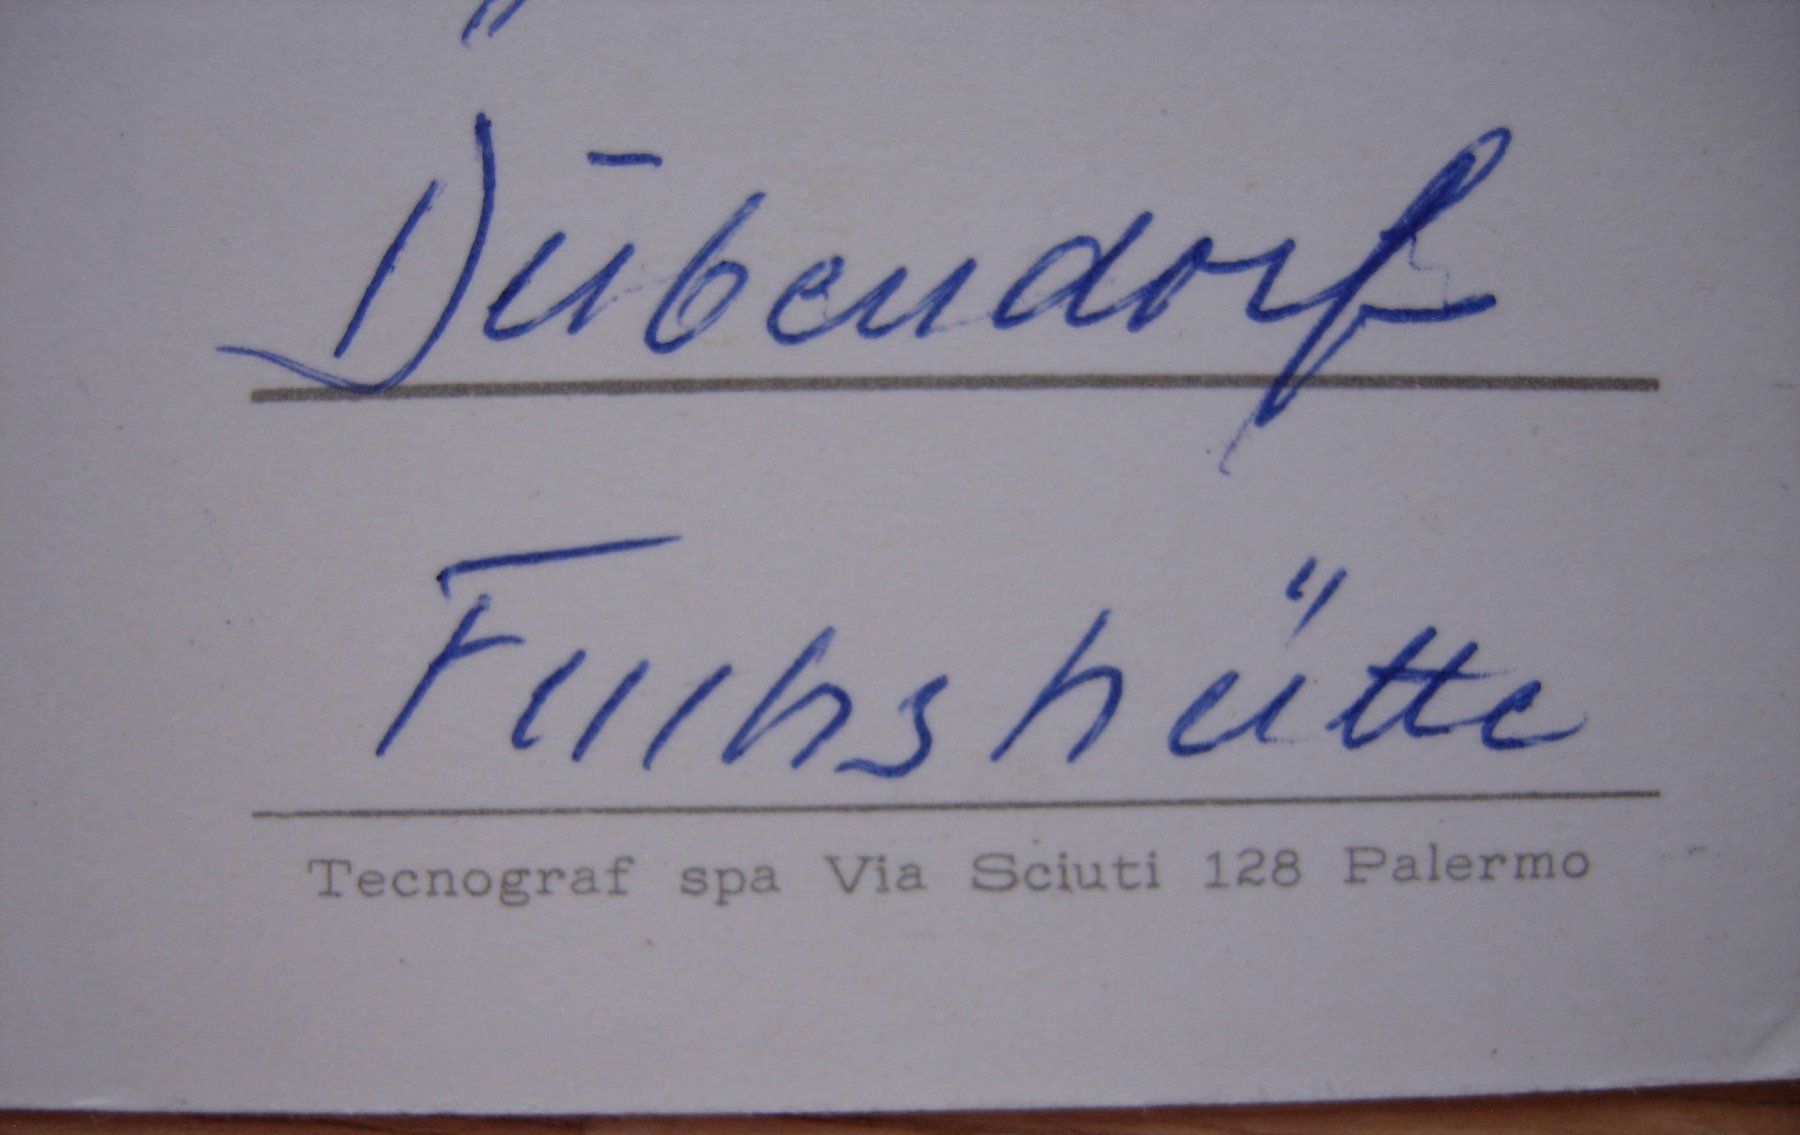 Dübendorf
Fuchshütte
Tecnograf spa Via Sciuti 128 Palermo